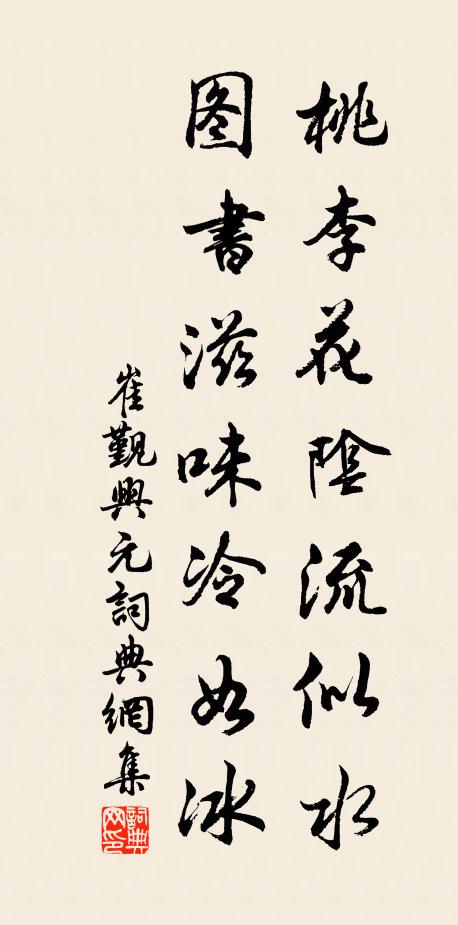 桃李花陰流似水
图書滋味冷如冰
崔觐興元詞典網集
詞典网印